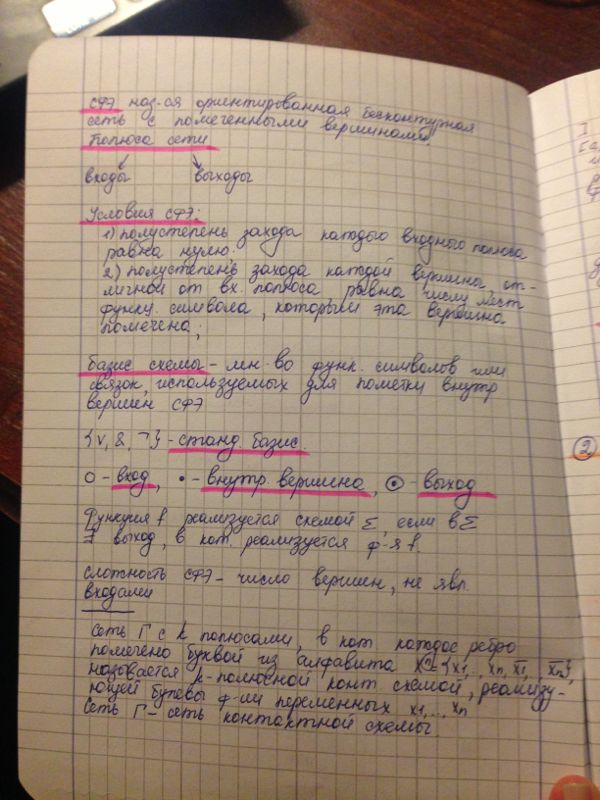 СФЭ наз-ся ориентированная бесконтурная
сеть с помеченными вершинами.
Полюса сети
входы выходы
Условия СФЭ:
1) полустепень захода каждого входного полюса
равна нулю;
2) полустепень захода каждой вершины, от-
личной от вх. полюса равна числу мест
функц. символа, которым эта вершина
помечена;
базис схемы – мн-во функ. символов или
связок, используемых для пометки внутр
вершин СФЭ
{∨, &, ¬} – станд. базис.
○ – вход, • – внутр. вершина, ⊙ – выход
Функция f реализуется схемой Σ, если в Σ
∃ выход, в кот. реализуется ф-я f.
сложность СФЭ – число вершин, не явл.
входами
Сеть Г с k полюсами, в кот. каждое ребро
помечено буквой из алфавита X = {x1, .., xn, x̄1, .., x̄n},
называется k-полюсной конт. схемой, реализу-
ющей булевы ф-ии переменных x1, ..., xn
Сеть Г – сеть контактной схемы.
2